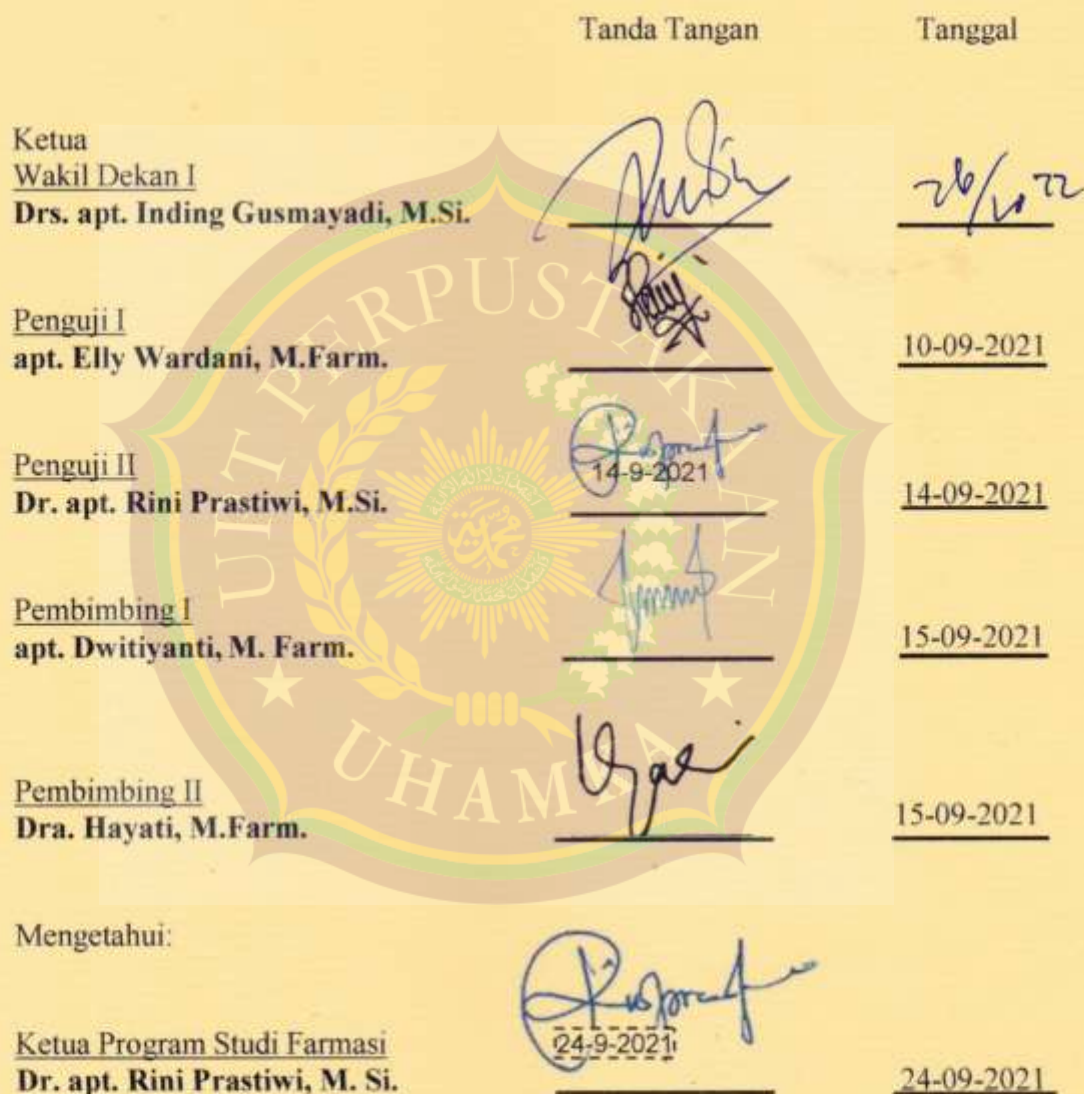 Tanda Tangan Tanggal
Ketua
Wakil Dekan I
Drs. apt. Inding Gusmayadi, M.Si.
Penguji I
apt. Elly Wardani, M.Farm. 10-09-2021
14-9-2021
Penguji II
Dr. apt. Rini Prastiwi, M.Si. 14-09-2021
Pembimbing I
apt. Dwitiyanti, M. Farm. 15-09-2021
Pembimbing II
Dra. Hayati, M.Farm. 15-09-2021
Mengetahui:
24-9-2021
Ketua Program Studi Farmasi
Dr. apt. Rini Prastiwi, M. Si. 24-09-2021
UIT PERPUSTAKAAN
UHAMKA